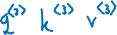 q^{(3)} k^{(3)} v^{(3)}